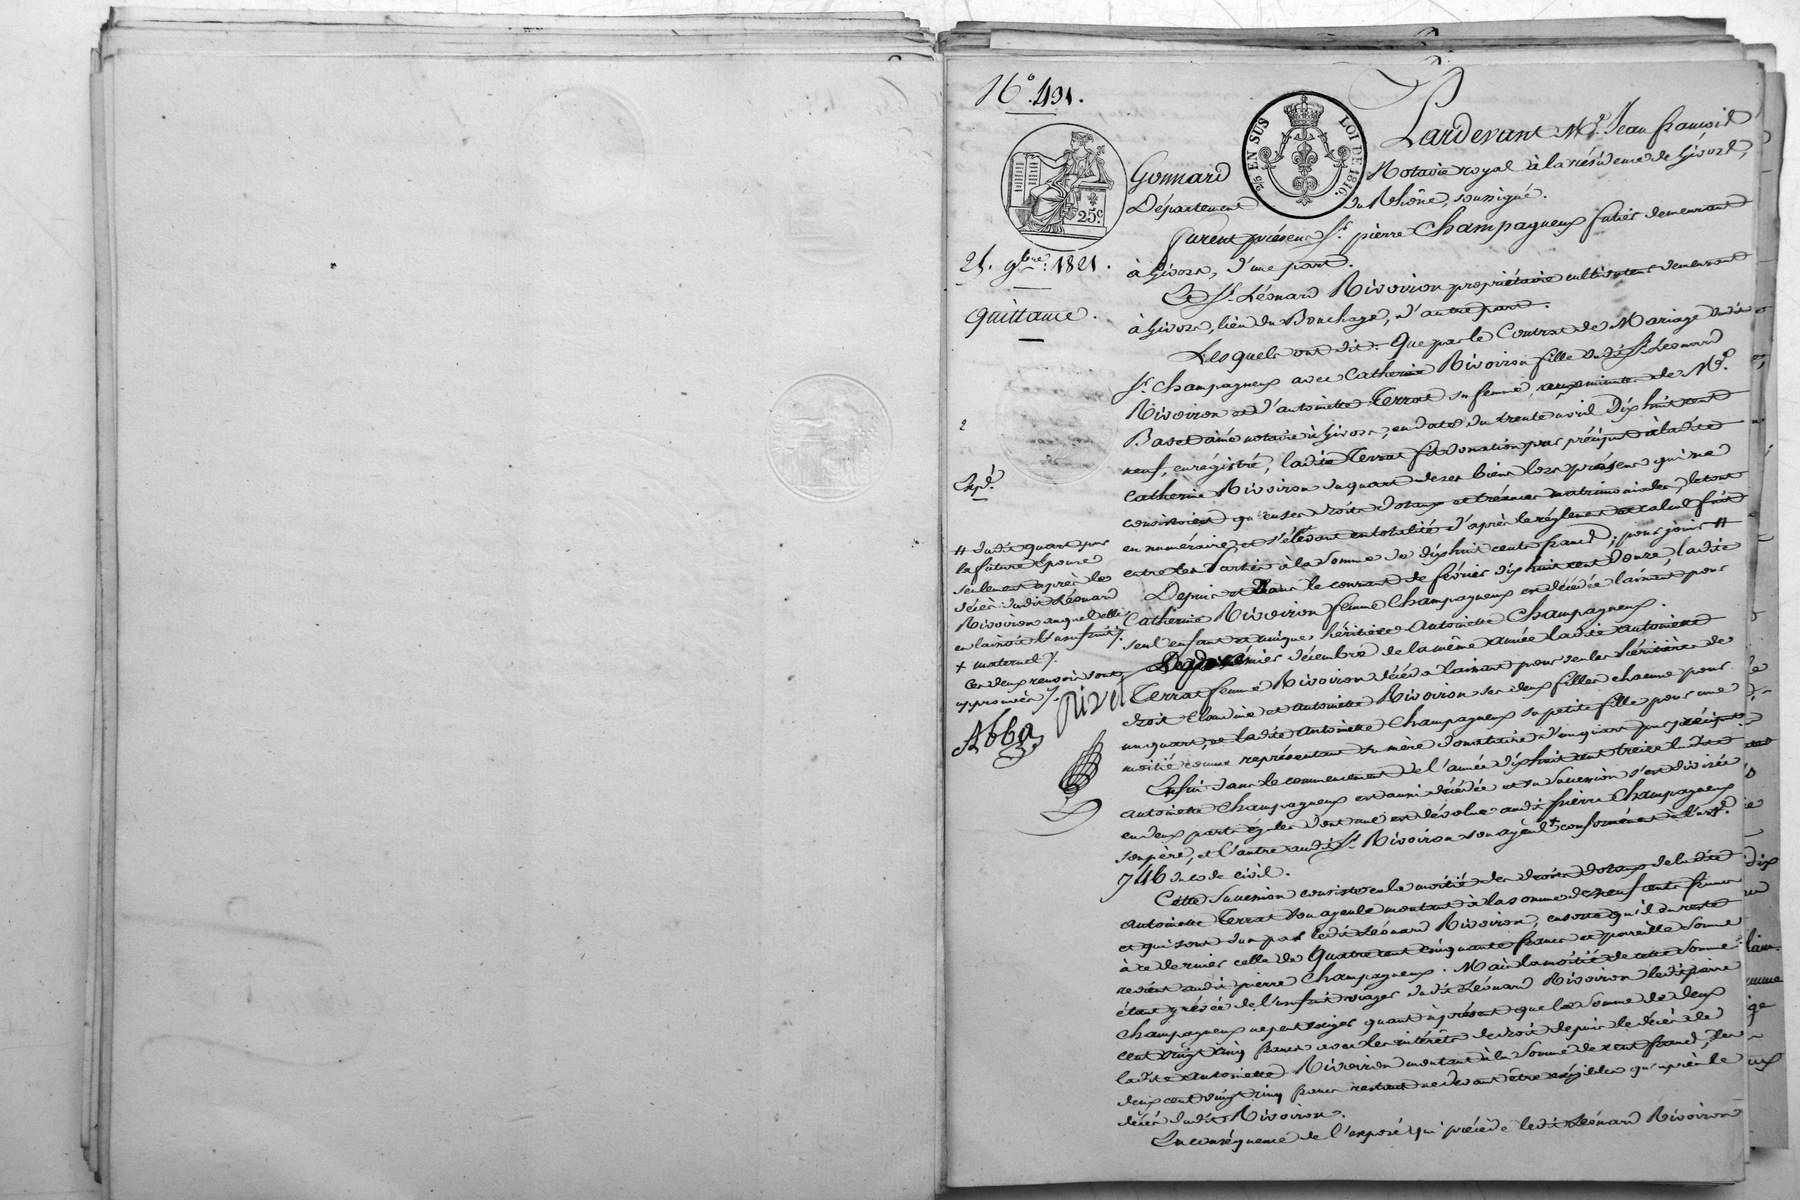 N.° 491.
Pardevant M.e Jean françois
25 EN SUS LOI DE 1816.
25.c
Gonnard Notaire royal à la résidence de Givors,
Département du Rhône, soussigné.
25. 9bre. 1821.
Quittance.
Expé.
Furent présens Sr. pierre Champagneux demeurant
à Givors, d'une part.
Et Sr. Léonard Rivoiron propriétaire cultivateur demeurant
à Givors, lieu du Bouchage, d'autre part.
Lesquels ont dit: Que par le Contrat de Mariage dudit
Sr. Champagneux avec Catherine Rivoiron fille dudit Sr. Léonard
Rivoiron et d'antoinette Terrat sa femme, aux minutes de Me.
Basset aîné notaire à Givors, en date du trente avril dix huit cent
neuf, enrégistré, ladite Terrat fit donation par préciput à ladite
Catherine Rivoiron du quart de ses biens lors présens qui ne
consistoient qu'en ses droits dotaux et trésmes matrimoniales, le tout
en numéraire, et s'élevant en totalité d'après le réglement et calcul fait
entre les parties à la somme de dix huit cents francs; pour jouir #
Depuis et dans le courant de février dix huit cent Douze, ladite
Catherine Rivoiron femme Champagneux est décédée laissant pour
seul enfant et unique héritière Antoinette Champagneux.
Le premier décembre de la même année ladite antoinette
Terrat femme Rivoiron décéda laissant pour seules héritières de
droit Claudine et antoinette Rivoiron ses deux filles chacune pour
un quart, et ladite Antoinette Champagneux sa petite fille pour une
moitié comme représentant sa mère donataire d'un quart par préciput.
Enfin dans le commencement de l'année dix huit cent treize ladite
antoinette Champagneux est aussi décédée et sa succession s'est divisée
en deux parts égales dont une est dévolue audit pierre Champagneux
son père, et l'autre audit Sr. Rivoiron son ayeul + conformément à l'art.
746 du code civil.
Cette succession consiste en la moitié des droits dotaux de ladite
antoinette Terrat son ayeule montant à la somme de neuf cents francs
et qui sont dus par ledit Léonard Rivoiron, ensorte qu'il en reste
à ce dernier celle de Quatre cent cinquante francs et pareille somme
revient audit pierre Champagneux. Mais la moitié de cette somme
étant grévée de l'usufruit viager dudit Léonard Rivoiron ledit pierre
Champagneux ne peut exiger quant à présent que la somme de deux
cent vingt cinq francs avec les intérêts de droit depuis le décès de
ladite antoinette Rivoiron montant à la somme de cent francs, les
deux cent vingt cinq francs restant ne devant être exigibles qu'après le
décès dudit Rivoiron.
En conséquence de l'exposé qui précéde ledit Léonard Rivoiron
# dudit quart par
la future épouse
seulement après le
décès dudit Léonard
Rivoiron auquel elle
en laissoit l'usufruit.
+ maternel
Ces deux renvois sont
approuvés
Abba